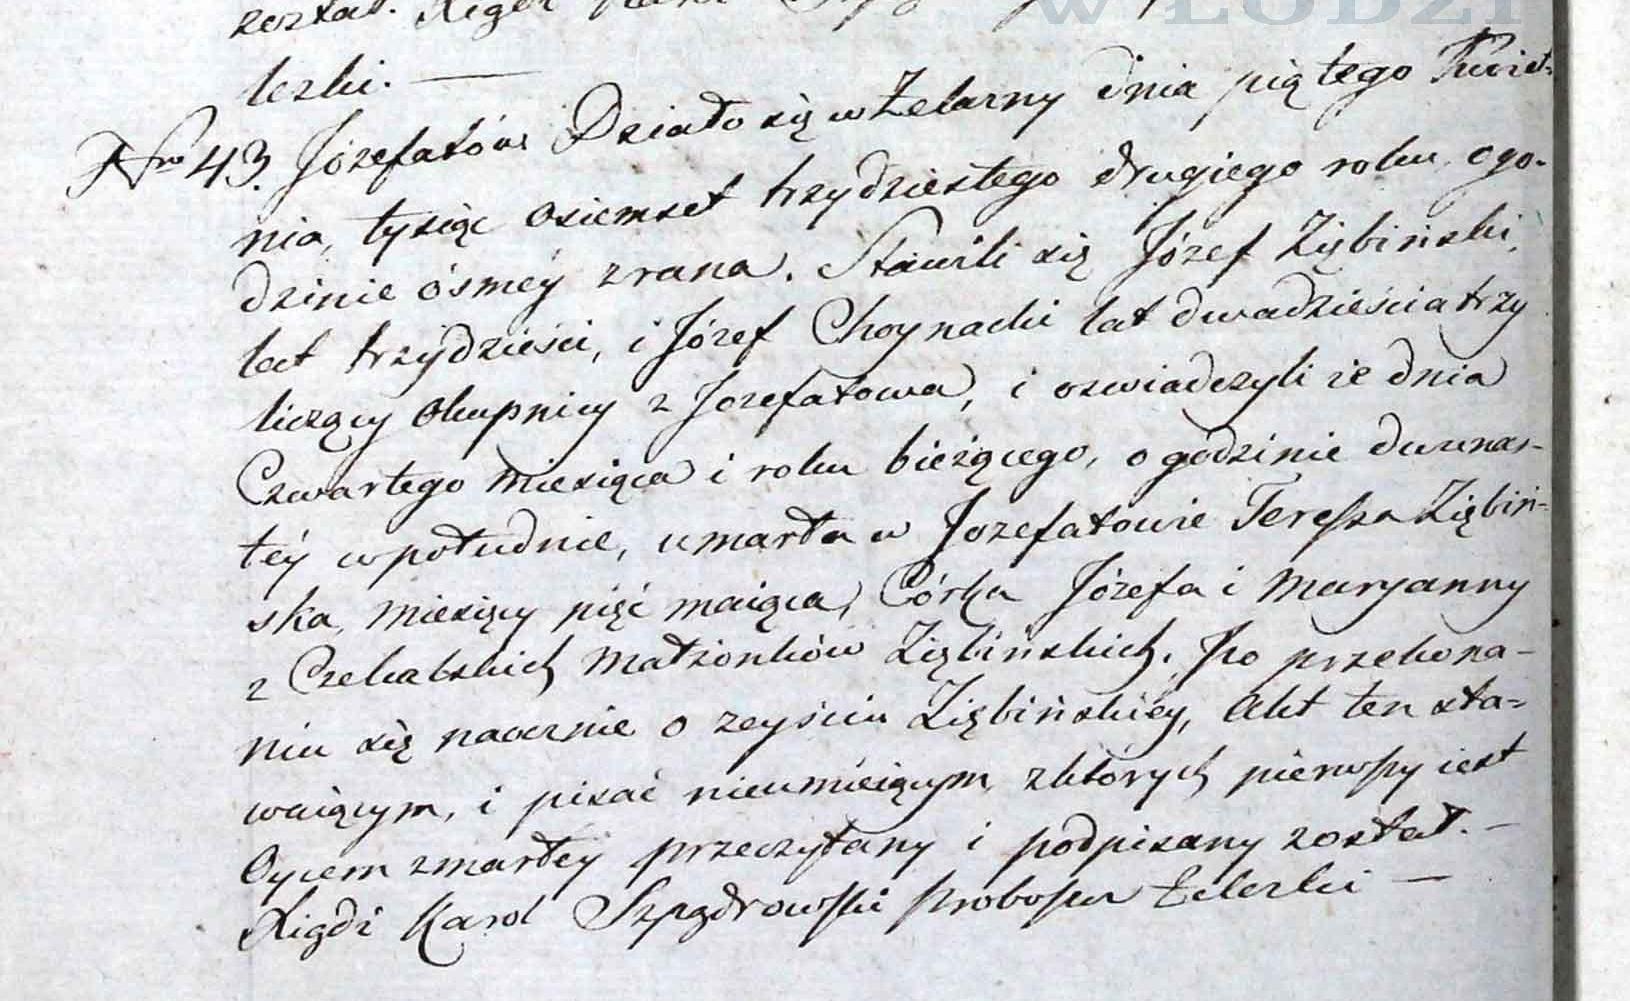 został. Xiądz
W ŁODZI
leski. —
Nro 43. Józefatów. Działo się w Łekawy dnia piątego Kwiet-
nia, tysiąc osiemset trzydziestego drugiego roku, o go-
dzinie ósméy zrana. Stawili się Józef Ziębiński,
lat trzydzieści, i Józef Choynacki lat dwadzieścia trzy
liczący okupnicy z Jozefatowa, i oswiadczyli że dnia
Czwartego miesiąca i roku bieżącego, o godzinie dwunas-
téy w południe, umarła w Jozefatowie Teressa Ziębiń-
ska, miesięcy pięć maiąca, Córka Józefa i Maryanny
z Czekalskich Małżonków Ziębińskich. Po przekona-
niu się naocznie o zeyściu Ziębińskiéy, Akt ten sta-
waiącym, i pisać nieumieiącym, z których pierwszy iest
Oycem zmarłéy przeczytany i podpisany został. —
Xiądz Karol Probosz —